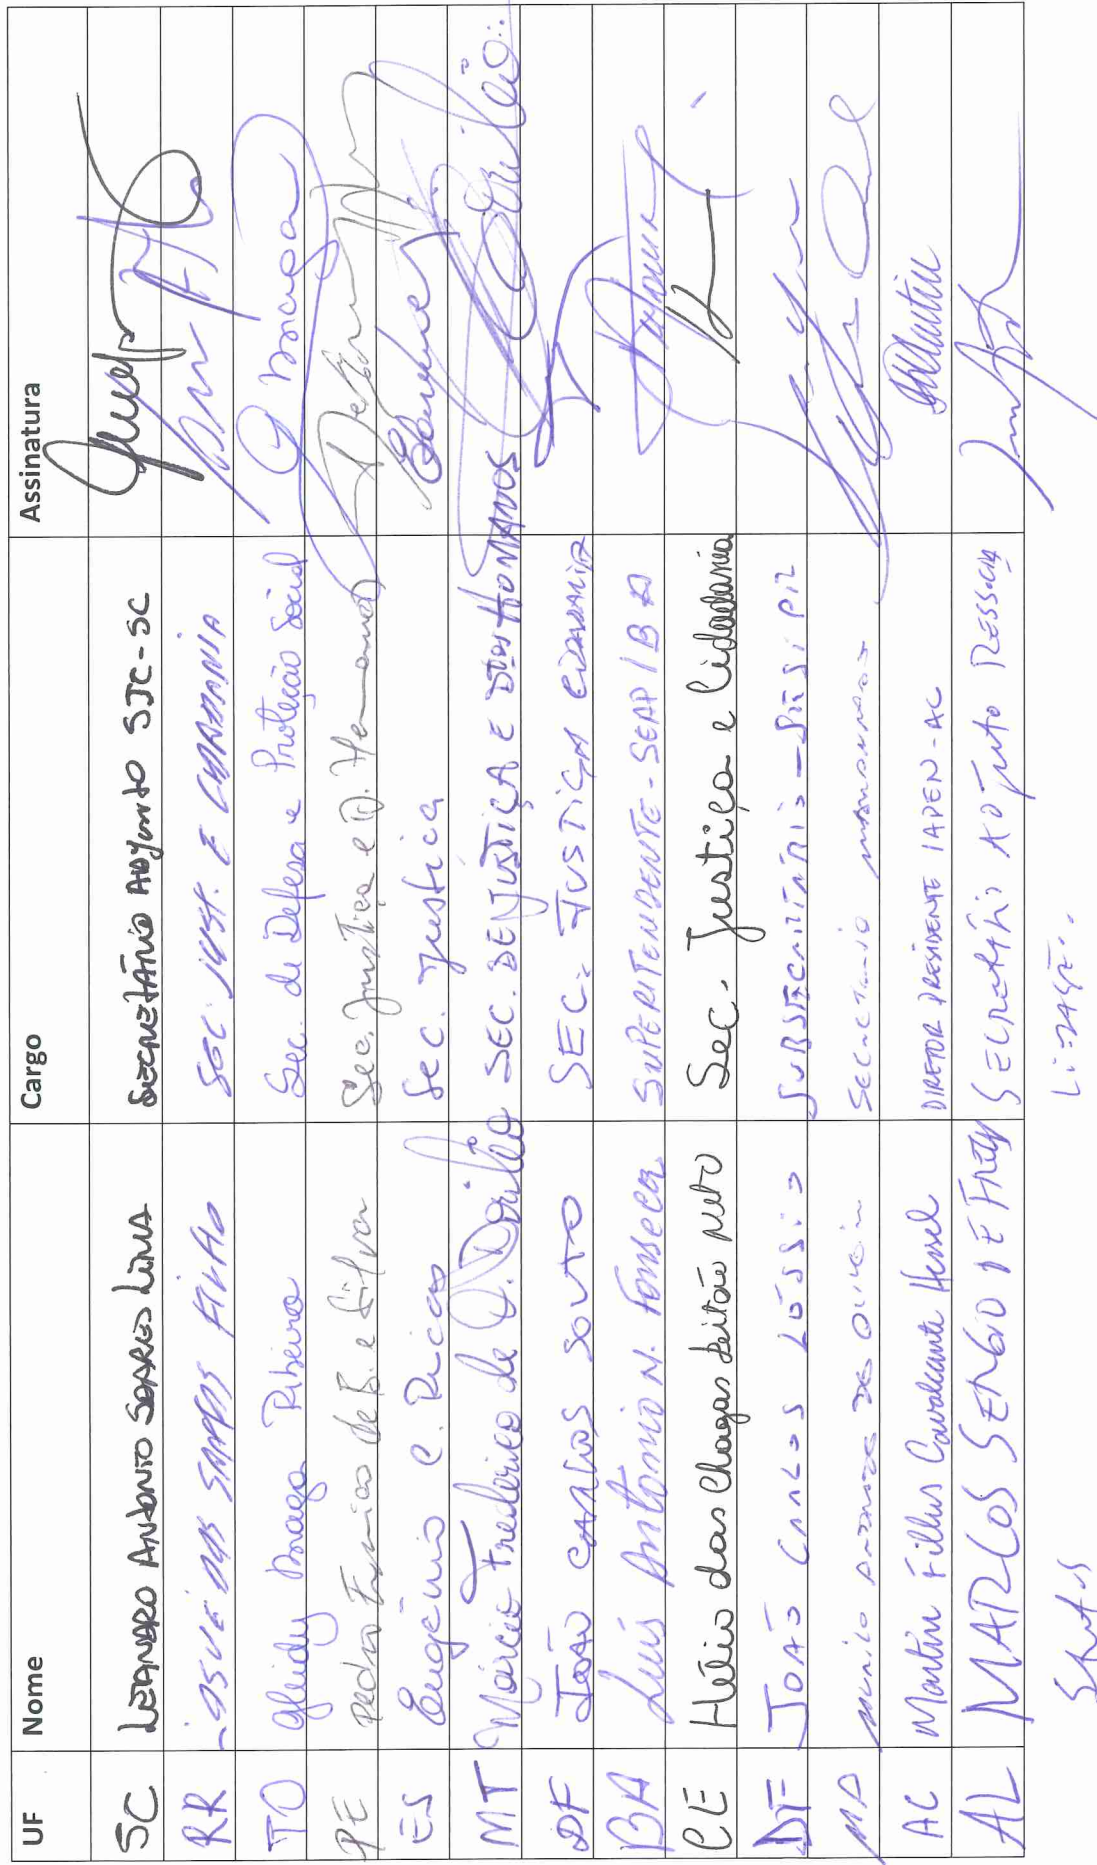 UF Nome Cargo Assinatura
SC LEANDRO ANTONIO SOARES LIMA SECRETÁRIO ADJUNTO SJC-SC
RR JOSUÉ DOS SANTOS FILHO SEC. JUST. E CIDADANIA
TO Gleidy Braga Ribeiro Sec. de Defesa e Proteção Social G Braga
PE Pedro Eurico de B. e Silva Sec. Justiça e D. Humanos
ES Eugênio C. Ricas Sec. Justiça
MT Márcio Frederico de O. Dorilêo SEC. DE JUSTIÇA E DTOS HUMANOS
DF JOÃO CARLOS SOUTO SEC. JUSTIÇA CIDADANIA
BA Luís Antonio N. Fonseca SUPERITENDENTE - SEAP/BA
CE Hélio das Chagas Leitão Neto Sec. Justiça e Cidadania
DF JOÃO CARLOS LÓSSIO SUBSECRETÁRIO -
MA Murilo Andrade de Oliveira Secretário
AC Martin Fillus Cavalcante Hessel DIRETOR PRESIDENTE IAPEN-AC
AL MARCOS SÉRGIO DE FREITAS SECRETÁRIO ADJUNTO RESSOCIA
Santos LIZAÇÃO.